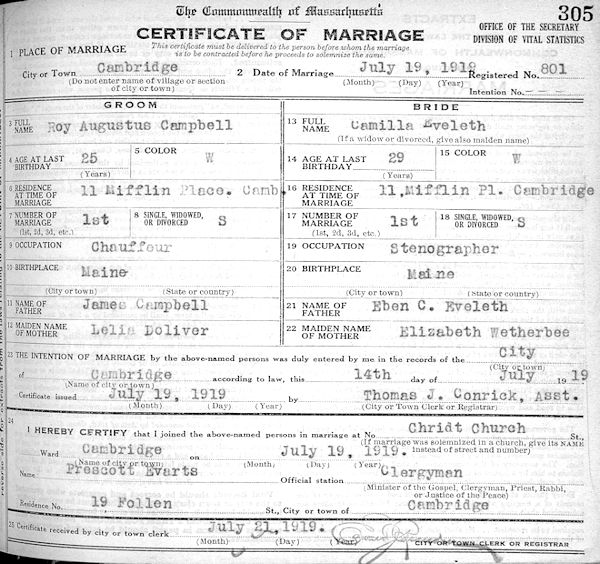 The Commonwealth of Massachusetts
305
CERTIFICATE OF MARRIAGE
OFFICE OF THE SECRETARY
DIVISION OF VITAL STATISTICS
1 PLACE OF MARRIAGE
This certificate must be delivered to the person before whom the marriage
is to be contracted before he proceeds to solemnize the same.
City or Town Cambridge 2 Date of Marriage July 19, 1919 Registered No. 801
(Do not enter name of village or section
of city or town) (Month) (Day) (Year) Intention No. - - -
GROOM BRIDE
3 FULL NAME Roy Augustus Campbell 13 FULL NAME Camilla Eveleth
(If a widow or divorced, give also maiden name)
4 AGE AT LAST BIRTHDAY 25 5 COLOR W 14 AGE AT LAST BIRTHDAY 29 15 COLOR W
(Years) (Years)
6 RESIDENCE AT TIME OF MARRIAGE 11 Mifflin Place. Camb. 16 RESIDENCE AT TIME OF MARRIAGE 11, Mifflin Pl. Cambridge
7 NUMBER OF MARRIAGE 1st 8 SINGLE, WIDOWED, OR DIVORCED S 17 NUMBER OF MARRIAGE 1st 18 SINGLE, WIDOWED OR DIVORCED S
(1st, 2d, 3d, etc.) (1st, 2d, 3d, etc.)
9 OCCUPATION Chauffeur 19 OCCUPATION Stenographer
10 BIRTHPLACE Maine 20 BIRTHPLACE Maine
(City or town) (State or country) (City or town) (State or country)
11 NAME OF FATHER James Campbell 21 NAME OF FATHER Eben C. Eveleth
12 MAIDEN NAME OF MOTHER Lelia Doliver 22 MAIDEN NAME OF MOTHER Elizabeth Wetherbee
23 THE INTENTION OF MARRIAGE by the above-named persons was duly entered by me in the records of the City
(City or town)
of Cambridge according to law, this 14th day of July 19 19
(Name of city or town)
Certificate issued July 19, 1919 by Thomas J. Conrick, Asst.
(Month) (Day) (Year) (City or Town Clerk or Registrar)
24 I HEREBY CERTIFY that I joined the above-named persons in marriage at No Chridt Church St.,
(If marriage was solemnized in a church, give its NAME
instead of street and number)
Ward Cambridge on July 19, 1919.
(Name of city or town) (Month) (Day) (Year)
Name Prescott Evarts Official station Clergyman
(Minister of the Gospel, Clergyman, Priest, Rabbi,
or Justice of the Peace)
Residence No. 19 Follen St., City or town of Cambridge
25 Certificate received by city or town clerk July 21, 1919.
(Month) (Day) (Year) CITY OR TOWN CLERK OR REGISTRAR